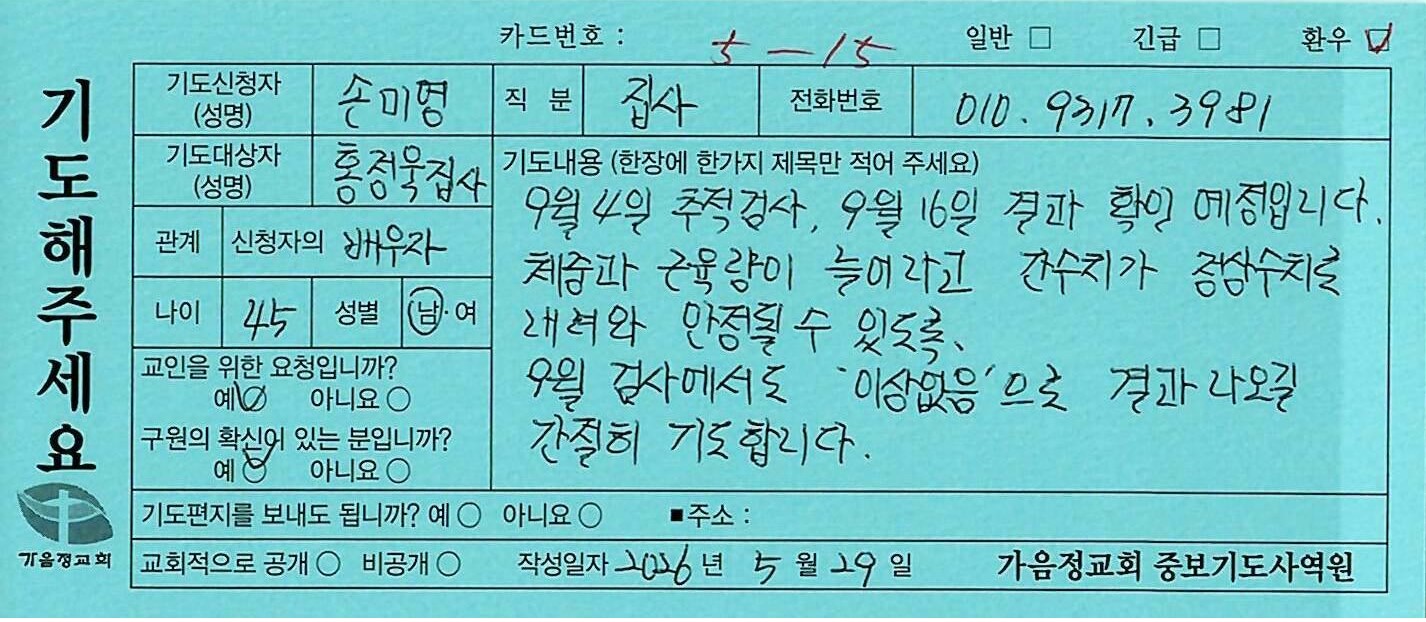 카드번호 : 5-15 일반 □ 긴급 □ 환우 ☑
기도해주세요
기도신청자 (성명) 손미영 직 분 집사 전화번호 010. 9317. 3981
기도대상자 (성명) 홍정욱집사
관계 신청자의 배우자
나이 45 성별 남·여
교인을 위한 요청입니까?
예 ☑ 아니요 ○
구원의 확신이 있는 분입니까?
예 ☑ 아니요 ○
기도내용 (한장에 한가지 제목만 적어 주세요)
9월 4일 추적검사, 9월 16일 결과 확인 예정입니다.
체중과 근육량이 늘어나고 간수치가 정상수치로
내려와 안정될 수 있도록,
9월 검사에서도 '이상없음'으로 결과나오길
간절히 기도합니다.
기도편지를 보내도 됩니까? 예 ○ 아니요 ○ ■주소 :
교회적으로 공개 ○ 비공개 ○ 작성일자 2026 년 5 월 29 일 가음정교회 중보기도사역원
가음정교회